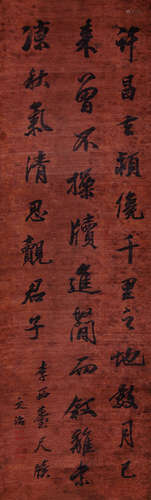 許昌去潁僥千里之地數月已
來曾不操牘進閽而叙離索
涼秋氣清思覯君子
李西臺尺牘
文治